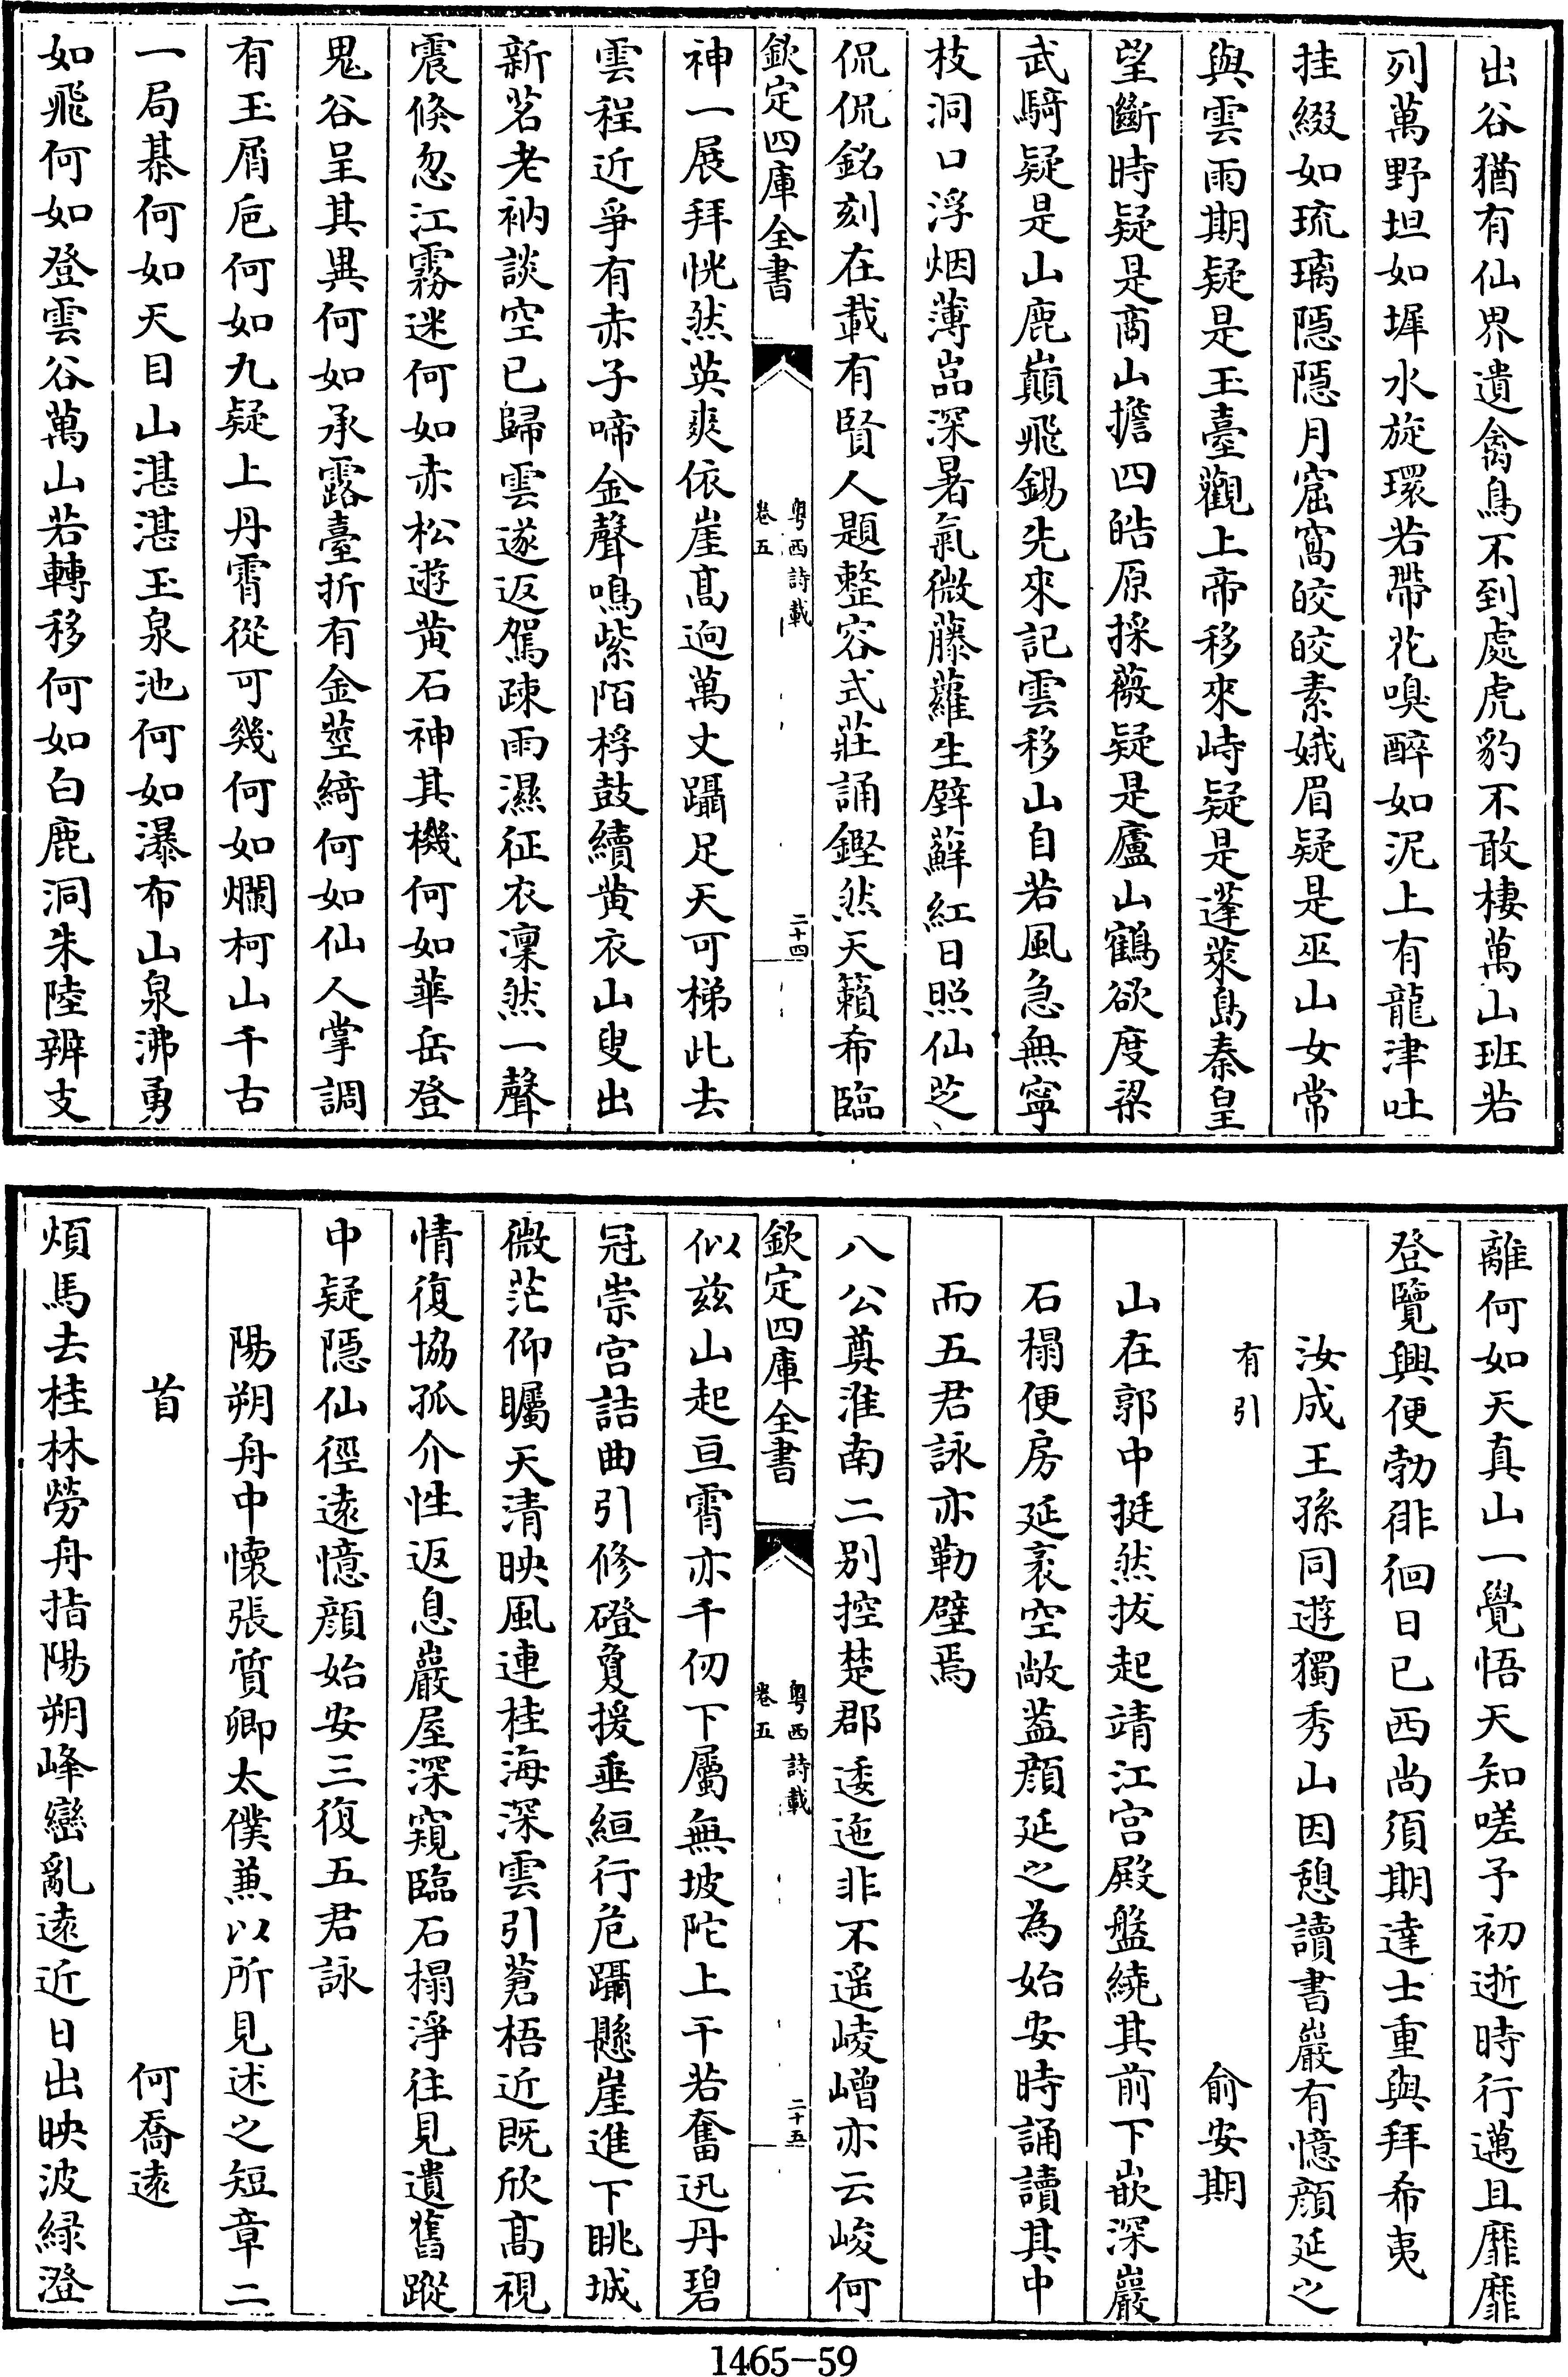 出谷猶有仙界遺禽鳥不到處虎豹不敢棲萬山班若
列萬野坦如墀水旋環若帶花嗅醉如泥上有龍津吐
挂綴如琉璃隱隱月窟窩皎皎素娥眉疑是巫山女常
與雲雨期疑是玉臺觀上帝移來峙疑是蓬萊島秦皇
望斷時疑是商山擔四皓原採薇疑是廬山鶴欲度梁
武騎疑是山鹿巔飛錫先來記雲移山自若風急無寧
枝洞口浮烟薄嵓深暑氣微藤蘿生壁蘚紅日照仙芝
侃侃銘刻在載有賢人題整容式莊誦鏗然天籟希臨
欽定四庫全書
粤西詩載
卷五
二十四
神一展拜恍然英爽依崖髙逈萬丈躡足天可梯此去
雲程近爭有赤子啼金聲鳴紫陌桴鼓續黄衣山叟出
新茗老衲談空已歸雲遂返駕疎雨濕征衣凜然一聲
震倏忽江霧迷何如赤松遊黄石神其機何如華岳登
鬼谷呈其異何如承露臺折有金莖綺何如仙人掌調
有玉屑巵何如九疑上丹霄從可幾何如爛柯山千古
一局棊何如天目山湛湛玉泉池何如瀑布山泉沸勇
如飛何如登雲谷萬山若轉移何如白鹿洞朱陸辨支
離何如天真山一覺悟天知嗟予初逝時行邁且靡靡
登覽興便勃徘徊日已西尚須期達士重與拜希夷
汝成王孫同遊獨秀山因憩讀書巖有憶顔延之
有引
俞安期
山在郭中挺然拔起靖江宫殿盤繞其前下嵌深巖
石榻便房延袤空敞葢顔延之為始安時誦讀其中
而五君詠亦勒壁焉
八公奠淮南二别控楚郡逶迤非不遥崚嶒亦云峻何
欽定四庫全書
粤西詩載
卷五
二十五
似兹山起亘霄亦千仞下屬無坡陀上干若奮迅丹碧
冠崇宫詰曲引修磴敻援垂絙行危躡懸崖進下眺城
微茫仰矚天清映風連桂海深雲引蒼梧近既欣髙視
情復協孤介性返息巖屋深窺臨石榻淨往見遺舊蹤
中疑隱仙徑遠憶顔始安三復五君詠
陽朔舟中懷張質卿太僕兼以所見述之短章二
首
何喬遠
煩馬去桂林勞舟指陽朔峰巒亂遠近日出映波緑澄
1465-59